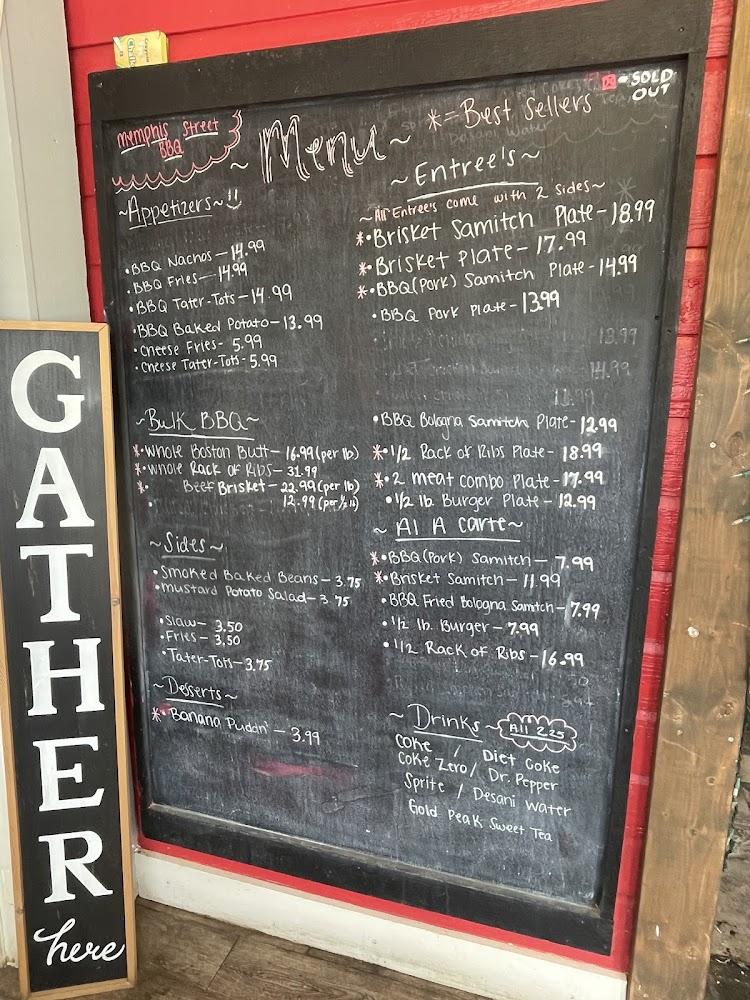 Memphis Street
BBQ
~ Menu ~
*=Best Sellers
= SOLD
OUT
~Appetizers~
•BBQ Nachos — 14.99
•BBQ Fries — 14.99
•BBQ Tater-Tots - 14.99
•BBQ Baked Potato - 13.99
•Cheese Fries - 5.99
•Cheese Tater-Tots - 5.99
~Bulk BBQ~
*•Whole Boston Butt — 16.99 (per lb)
*•Whole Rack of Ribs — 31.99
*• Beef Brisket — 22.99 (per lb)
12.99 (per ½ lb)
~Sides~
•Smoked Baked Beans — 3.75
•Mustard Potato Salad — 3.75
•Slaw — 3.50
•Fries — 3.50
•Tater-Tots — 3.75
~Desserts~
*•Banana Puddin' — 3.99
~Entree's~
~All Entree's come with 2 sides~
*•Brisket Samitch Plate - 18.99
*•Brisket Plate - 17.99
*•BBQ (Pork) Samitch Plate - 14.99
•BBQ Pork Plate - 13.99
13.99
14.99
•BBQ Bologna Samitch Plate - 12.99
*•1/2 Rack of Ribs Plate - 18.99
*•2 meat combo Plate - 17.99
•1/2 lb Burger Plate - 12.99
~ Al A Carte~
*•BBQ (Pork) Samitch — 7.99
*•Brisket Samitch — 11.99
•BBQ Fried Bologna Samitch - 7.99
•1/2 lb. Burger - 7.99
•1/2 Rack of Ribs - 16.99
~ Drinks ~ All 2.25
Coke / Diet Coke
Coke Zero / Dr. Pepper
Sprite / Desani Water
Gold Peak Sweet Tea
GATHER
here